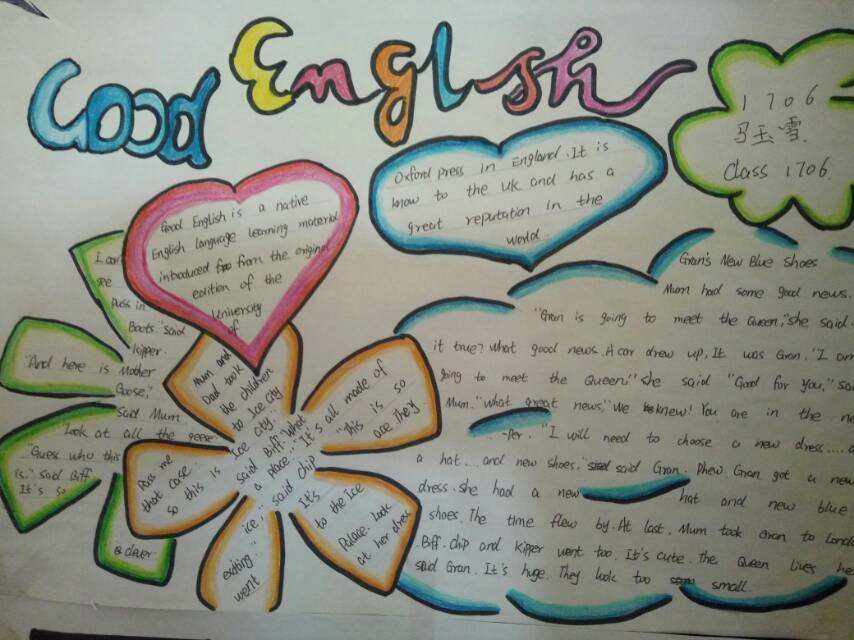 Good English
1706
马玉雪
Class 1706.
Good English is a native
English language learning material
introduced from the original
edition of the
University
of
Oxford press in England. It is
know to the UK and has a
great reputation in the
world.
I can
see
Puss in
Boots." said
kipper.
"And here is Mother
Goose,"
said Mum.
Look at all the geese
"Guess who this
is." said Biff.
It's so
& clever
Mum and
Dad took
the children
to Ice city
Ice city.
said Biff. "What
a place." "It's all made of
ice." said chip
"This is so
are they.
Pass me
that case.
so this is
exiting."
went
It's
to the Ice
Palace. Look
at her dress
Gran's New Blue shoes
Mum had some good news.
"Gran is going to meet the Queen," she said.
it true? What good news. A car drew up. It was Gran. "I am
going to meet the Queen!" She said "Good for you," said
Mum. "What great news," We knew! You are in the
-Per. "I will need to choose a new dress....
a hat... and new shoes." said Gran. Phew Gran got a new
dress. she had a new hat and new blue
shoes. The time flew by. At last. Mum took Gran to
Biff. chip and kipper went too. It's cute. the Queen lives
said Gran. It's huge. They look too small.